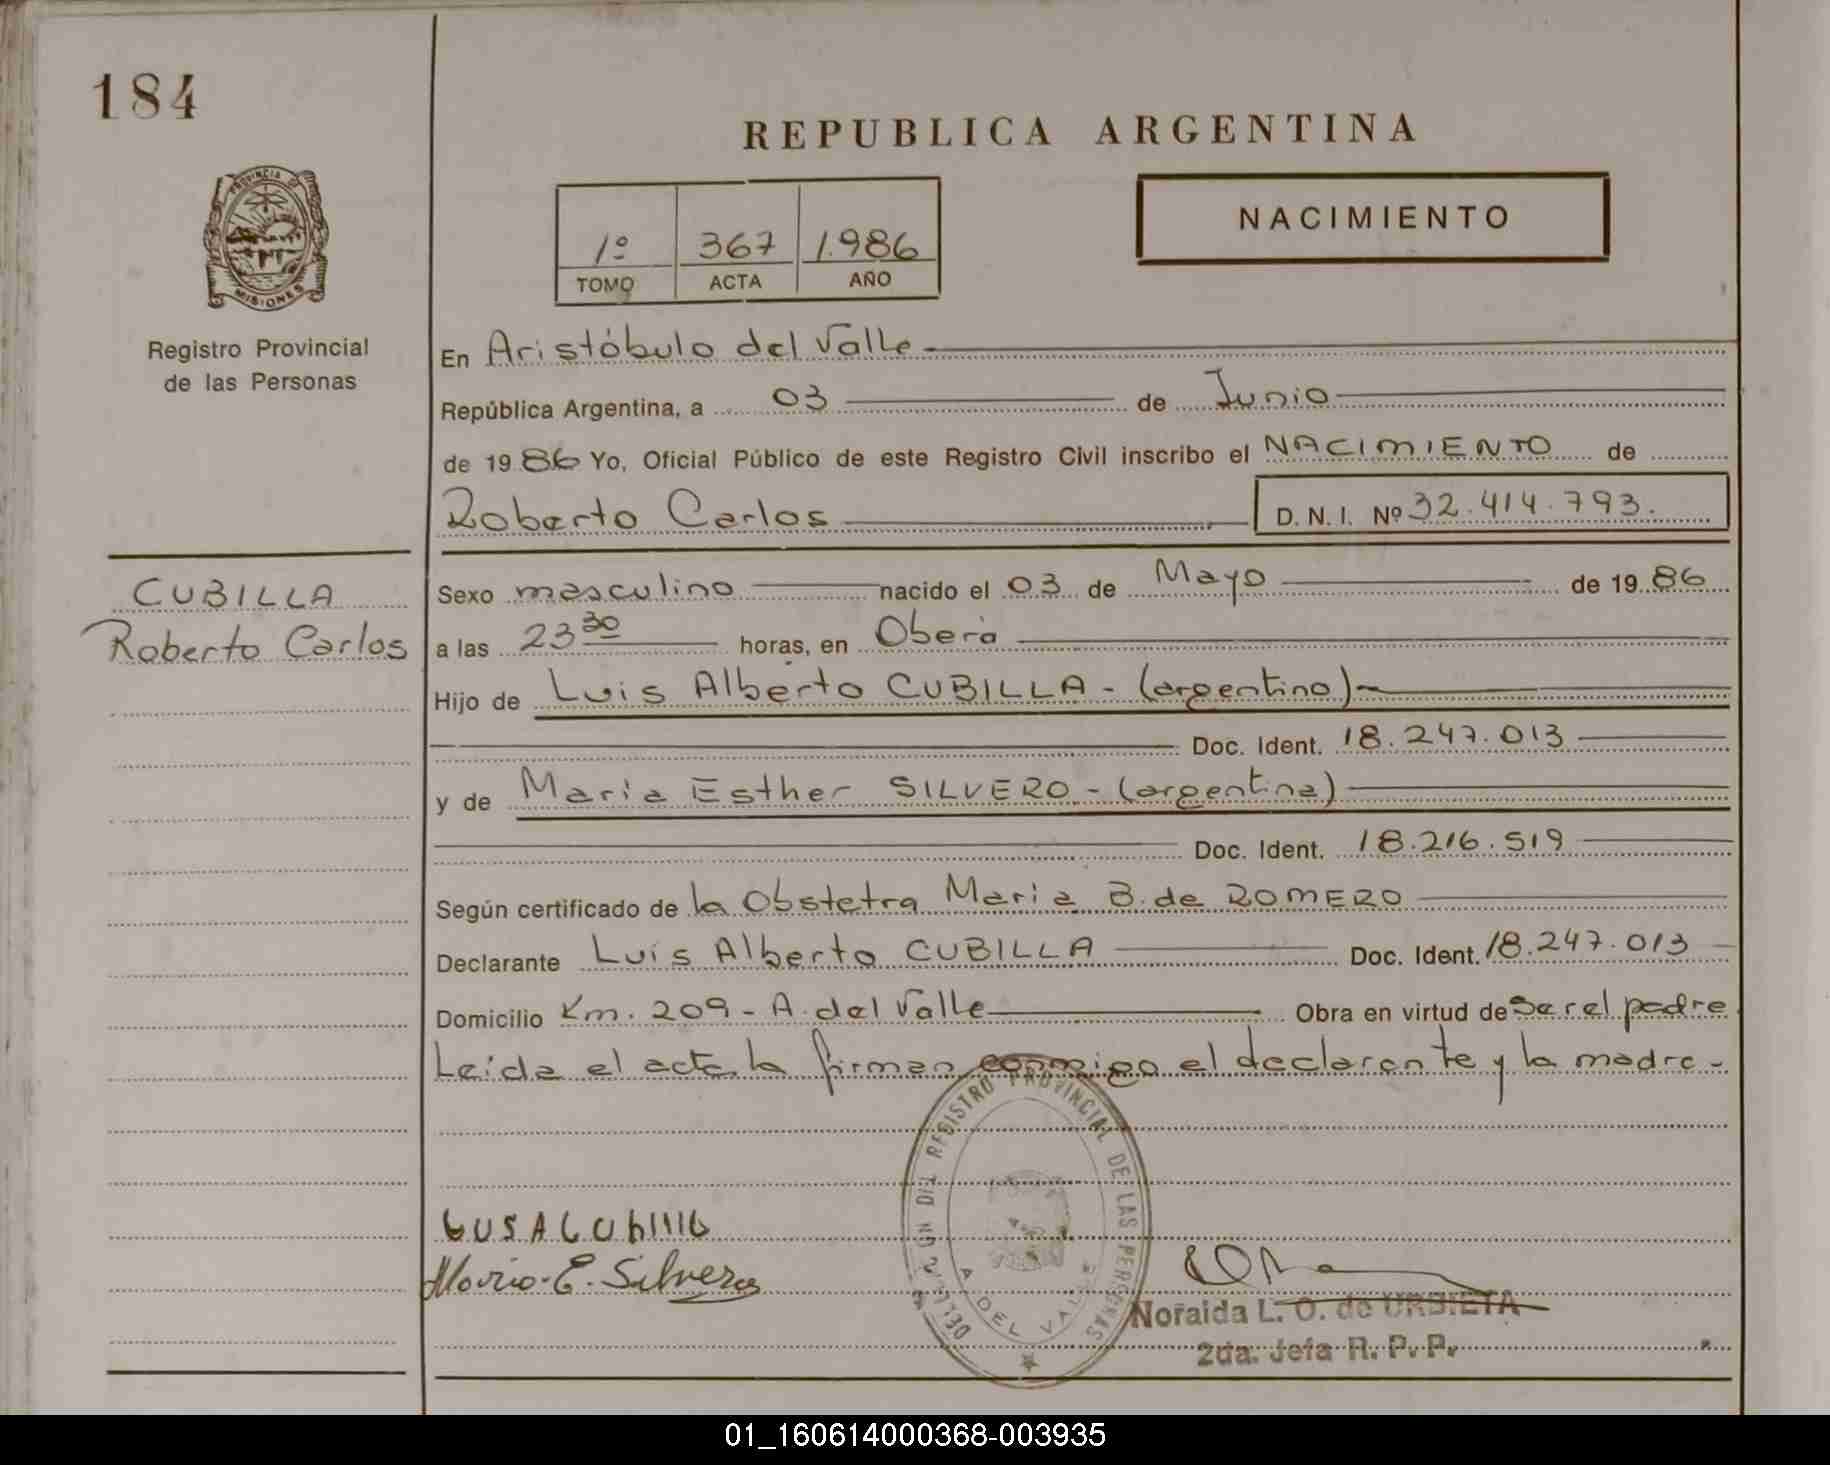 184
REPUBLICA ARGENTINA
PROVINCIA D
MISIONES
Registro Provincial
de las Personas
1º 367 1.986
TOMO ACTA AÑO
NACIMIENTO
En Aristóbulo del Valle
República Argentina, a 03 de Junio
de 19 86 Yo, Oficial Público de este Registro Civil inscribo el NACIMIENTO de
Roberto Carlos D. N. I. Nº 32.414.793.
CUBILLA
Roberto Carlos
Sexo masculino nacido el 03 de Mayo de 19 86
a las 23 30 horas, en Oberà
Hijo de Luis Alberto CUBILLA - (argentino)
Doc. Ident. 18.247.013
y de Maria Esther SILVERO - (argentina)
Doc. Ident. 18.216.519
Según certificado de la Obstetra Maria B. de ROMERO
Declarante Luis Alberto CUBILLA Doc. Ident. 18.247.013
Domicilio Km. 209 - A. del Valle Obra en virtud de ser el padre
Leida el acta la firman conmigo el declarante y la madre -
DEL REGISTRO PROVINCIAL DE LAS PERSONAS
A. DEL VALLE
Maria E. Silvero
Noraida L. O. de URBIETA
2da. Jefa R. P. P.
01_160614000368-003935